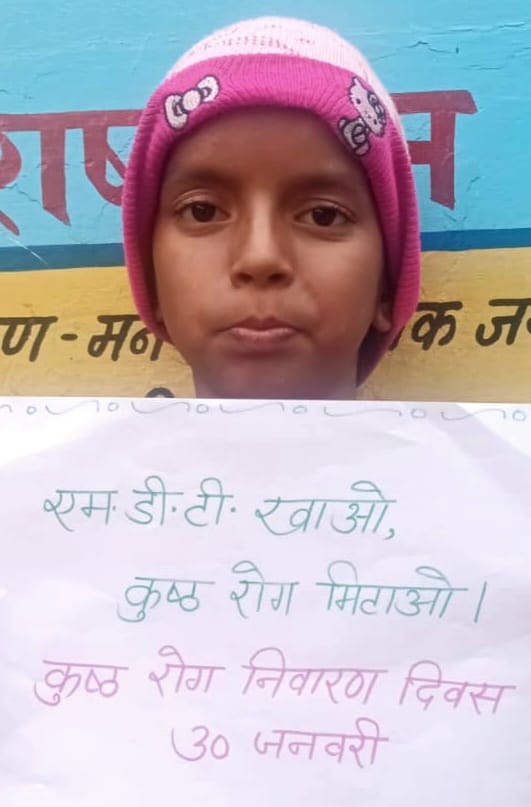 राष्
न
ण-मन
क ज
एम.डी.टी. खाओ,
कुष्ठ रोग मिटाओ।
कुष्ठ रोग निवारण दिवस
३० जनवरी